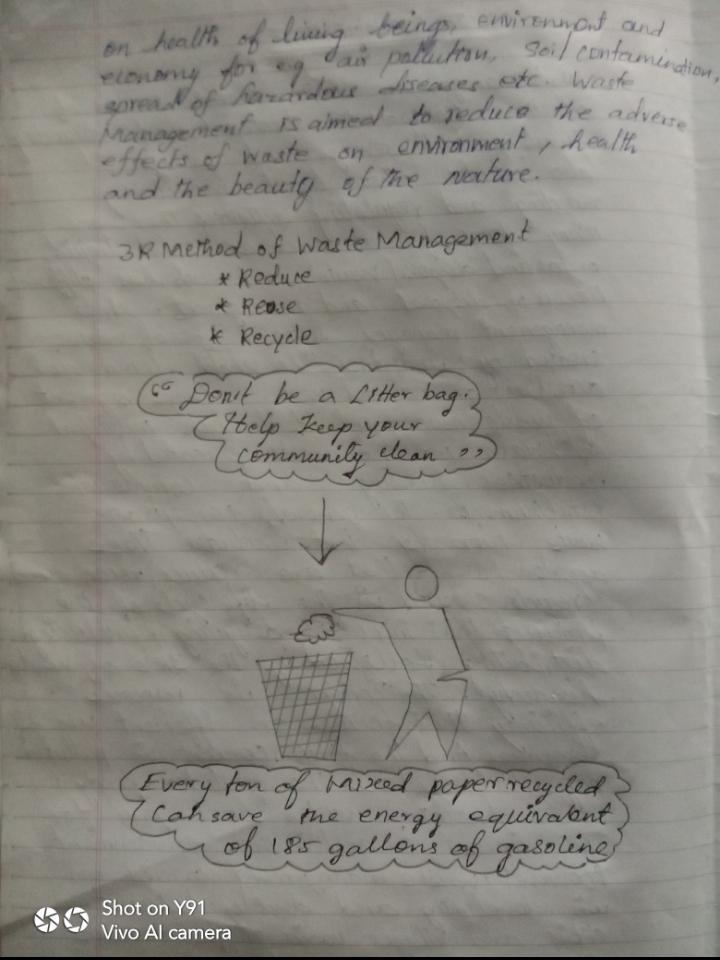 on health of living beings, environment and
economy for eg air pollution, Soil contamination,
spread of hazardous diseases etc. Waste
Management is aimed to reduce the adverse
effects of waste on environment, health
and the beauty of the nature.
3R Method of Waste Management
* Reduce
* Reuse
* Recycle
“ Don't be a Litter bag.
Help Keep your
community clean ”
Every ton of Mixed paper recycled
Can save the energy equivalent
of 185 gallons of gasoline
Shot on Y91
Vivo AI camera